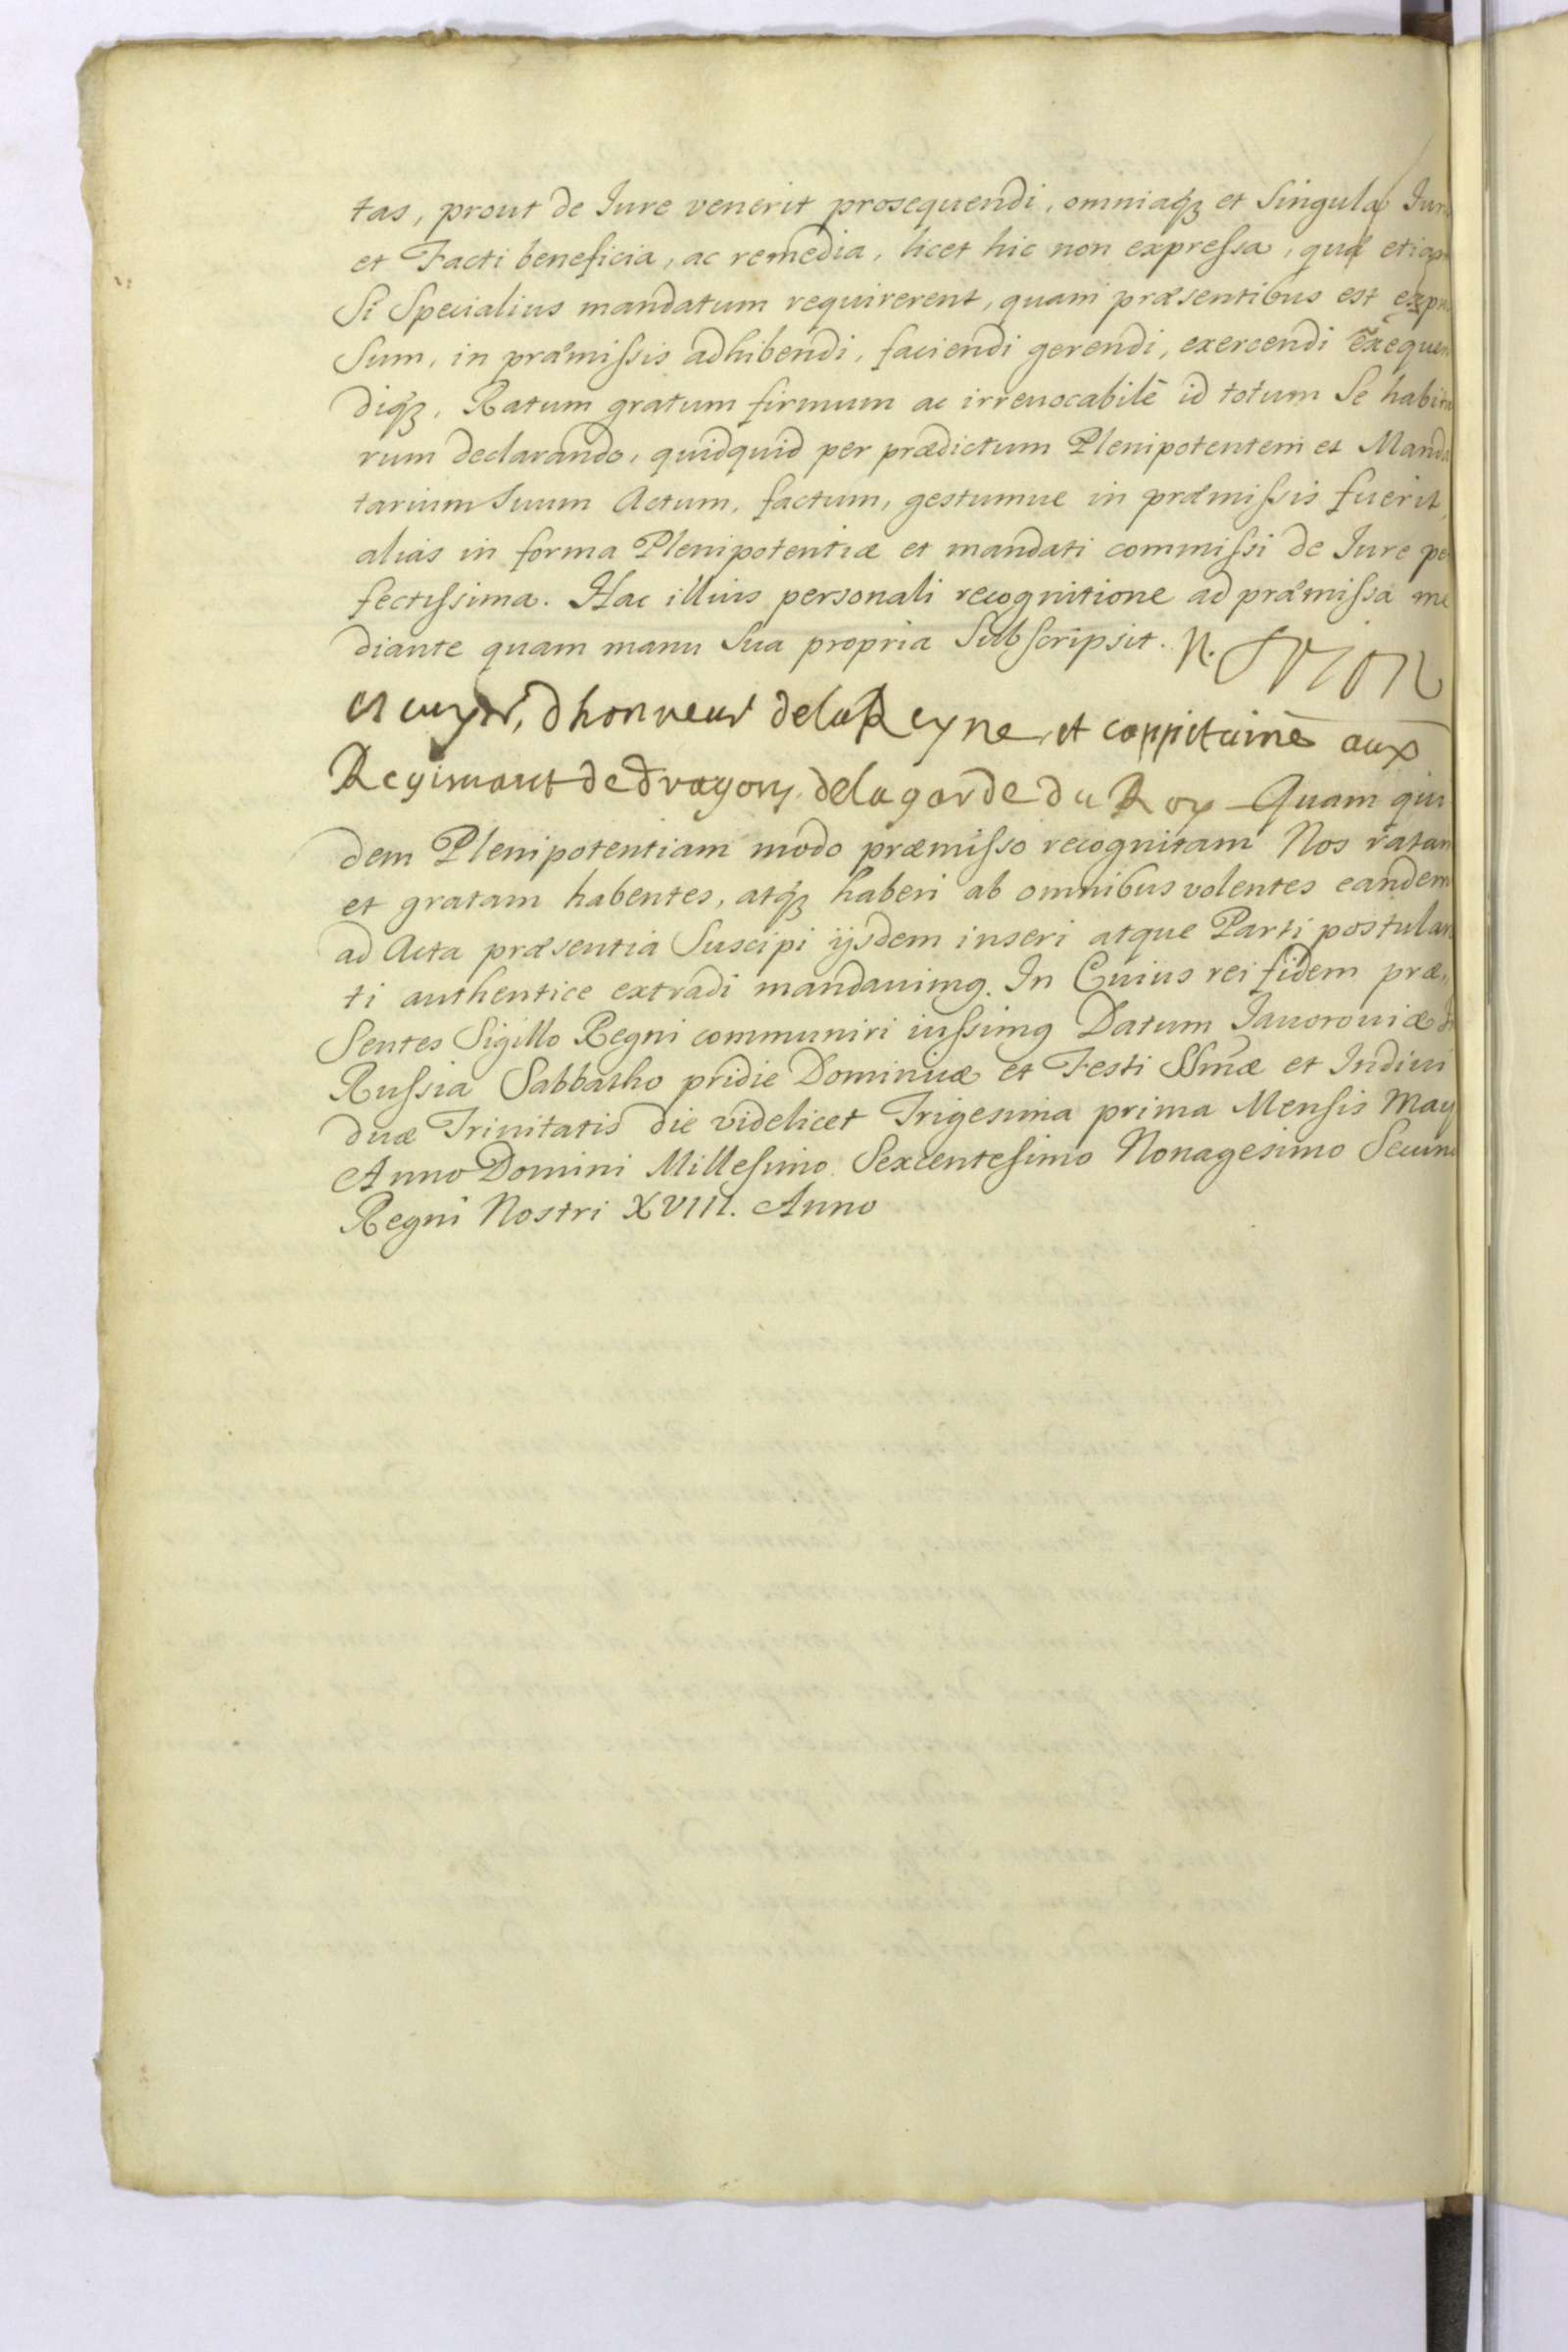 tas, prout de Iure venerit prosequendi, omniaqꝫ et Singula Iuri
et Facti beneficia, ac remedia, licet hic non expressa, quæ etiam
Si Specialius mandatum requirerent, quam præsentibus est expres
Sum, in præmissis adhibendi, faciendi gerendi, exercendi exequen
diqꝫ. Ratum gratum firmum ac irreuocabile id totum Se habitu
rum declarando, quidquid per prædictum Plenipotentem et Manda
tarium Suum Actum, factum, gestumue in præmissis fuerit,
alias in forma Plenipotentiæ et mandati commissi de Iure per
fectissima. Hac illius personali recognitione ad præmissa me
diante quam manu Sua propria Subscripsit. N.
escuyer, dhonneur dela Reyne et cappitaine aux
Regimant de dragons dela garde du Roy Quam qui
dem Plenipotentiam modo præmisso recognitam Nos ratam
et gratam habentes, atqꝫ haberi ab omnibus volentes eandem
ad Acta præsentia Suscipi ijsdem inseri atque Parti postulan
ti authentice extradi mandauimꝯ. In Cuius rei fidem præ
Sentes Sigillo Regni communiri iussimꝯ Datum Iauorouiæ in
Russia Sabbatho pridie Dominicæ et Festi SSmæ et Indiui
duæ Trinitatis die videlicet Trigesima prima Mensis May
Anno Domini Millesimo Sexcentesimo Nonagesimo Secund
Regni Nostri XVIII. Anno